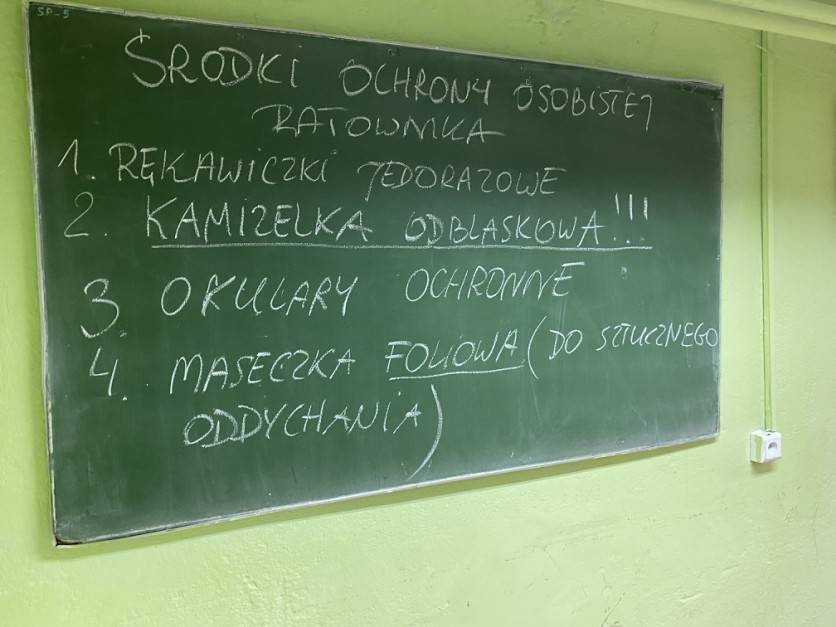 SP-5
ŚRODKI OCHRONY OSOBISTEJ
RATOWNIKA
1. RĘKAWICZKI JEDORAZOWE
2. KAMIZELKA ODBLASKOWA!!!
3. OKULARY OCHRONNE
4. MASECZKA FOLIOWA (DO SZTUCZNEGO
ODDYCHANIA)